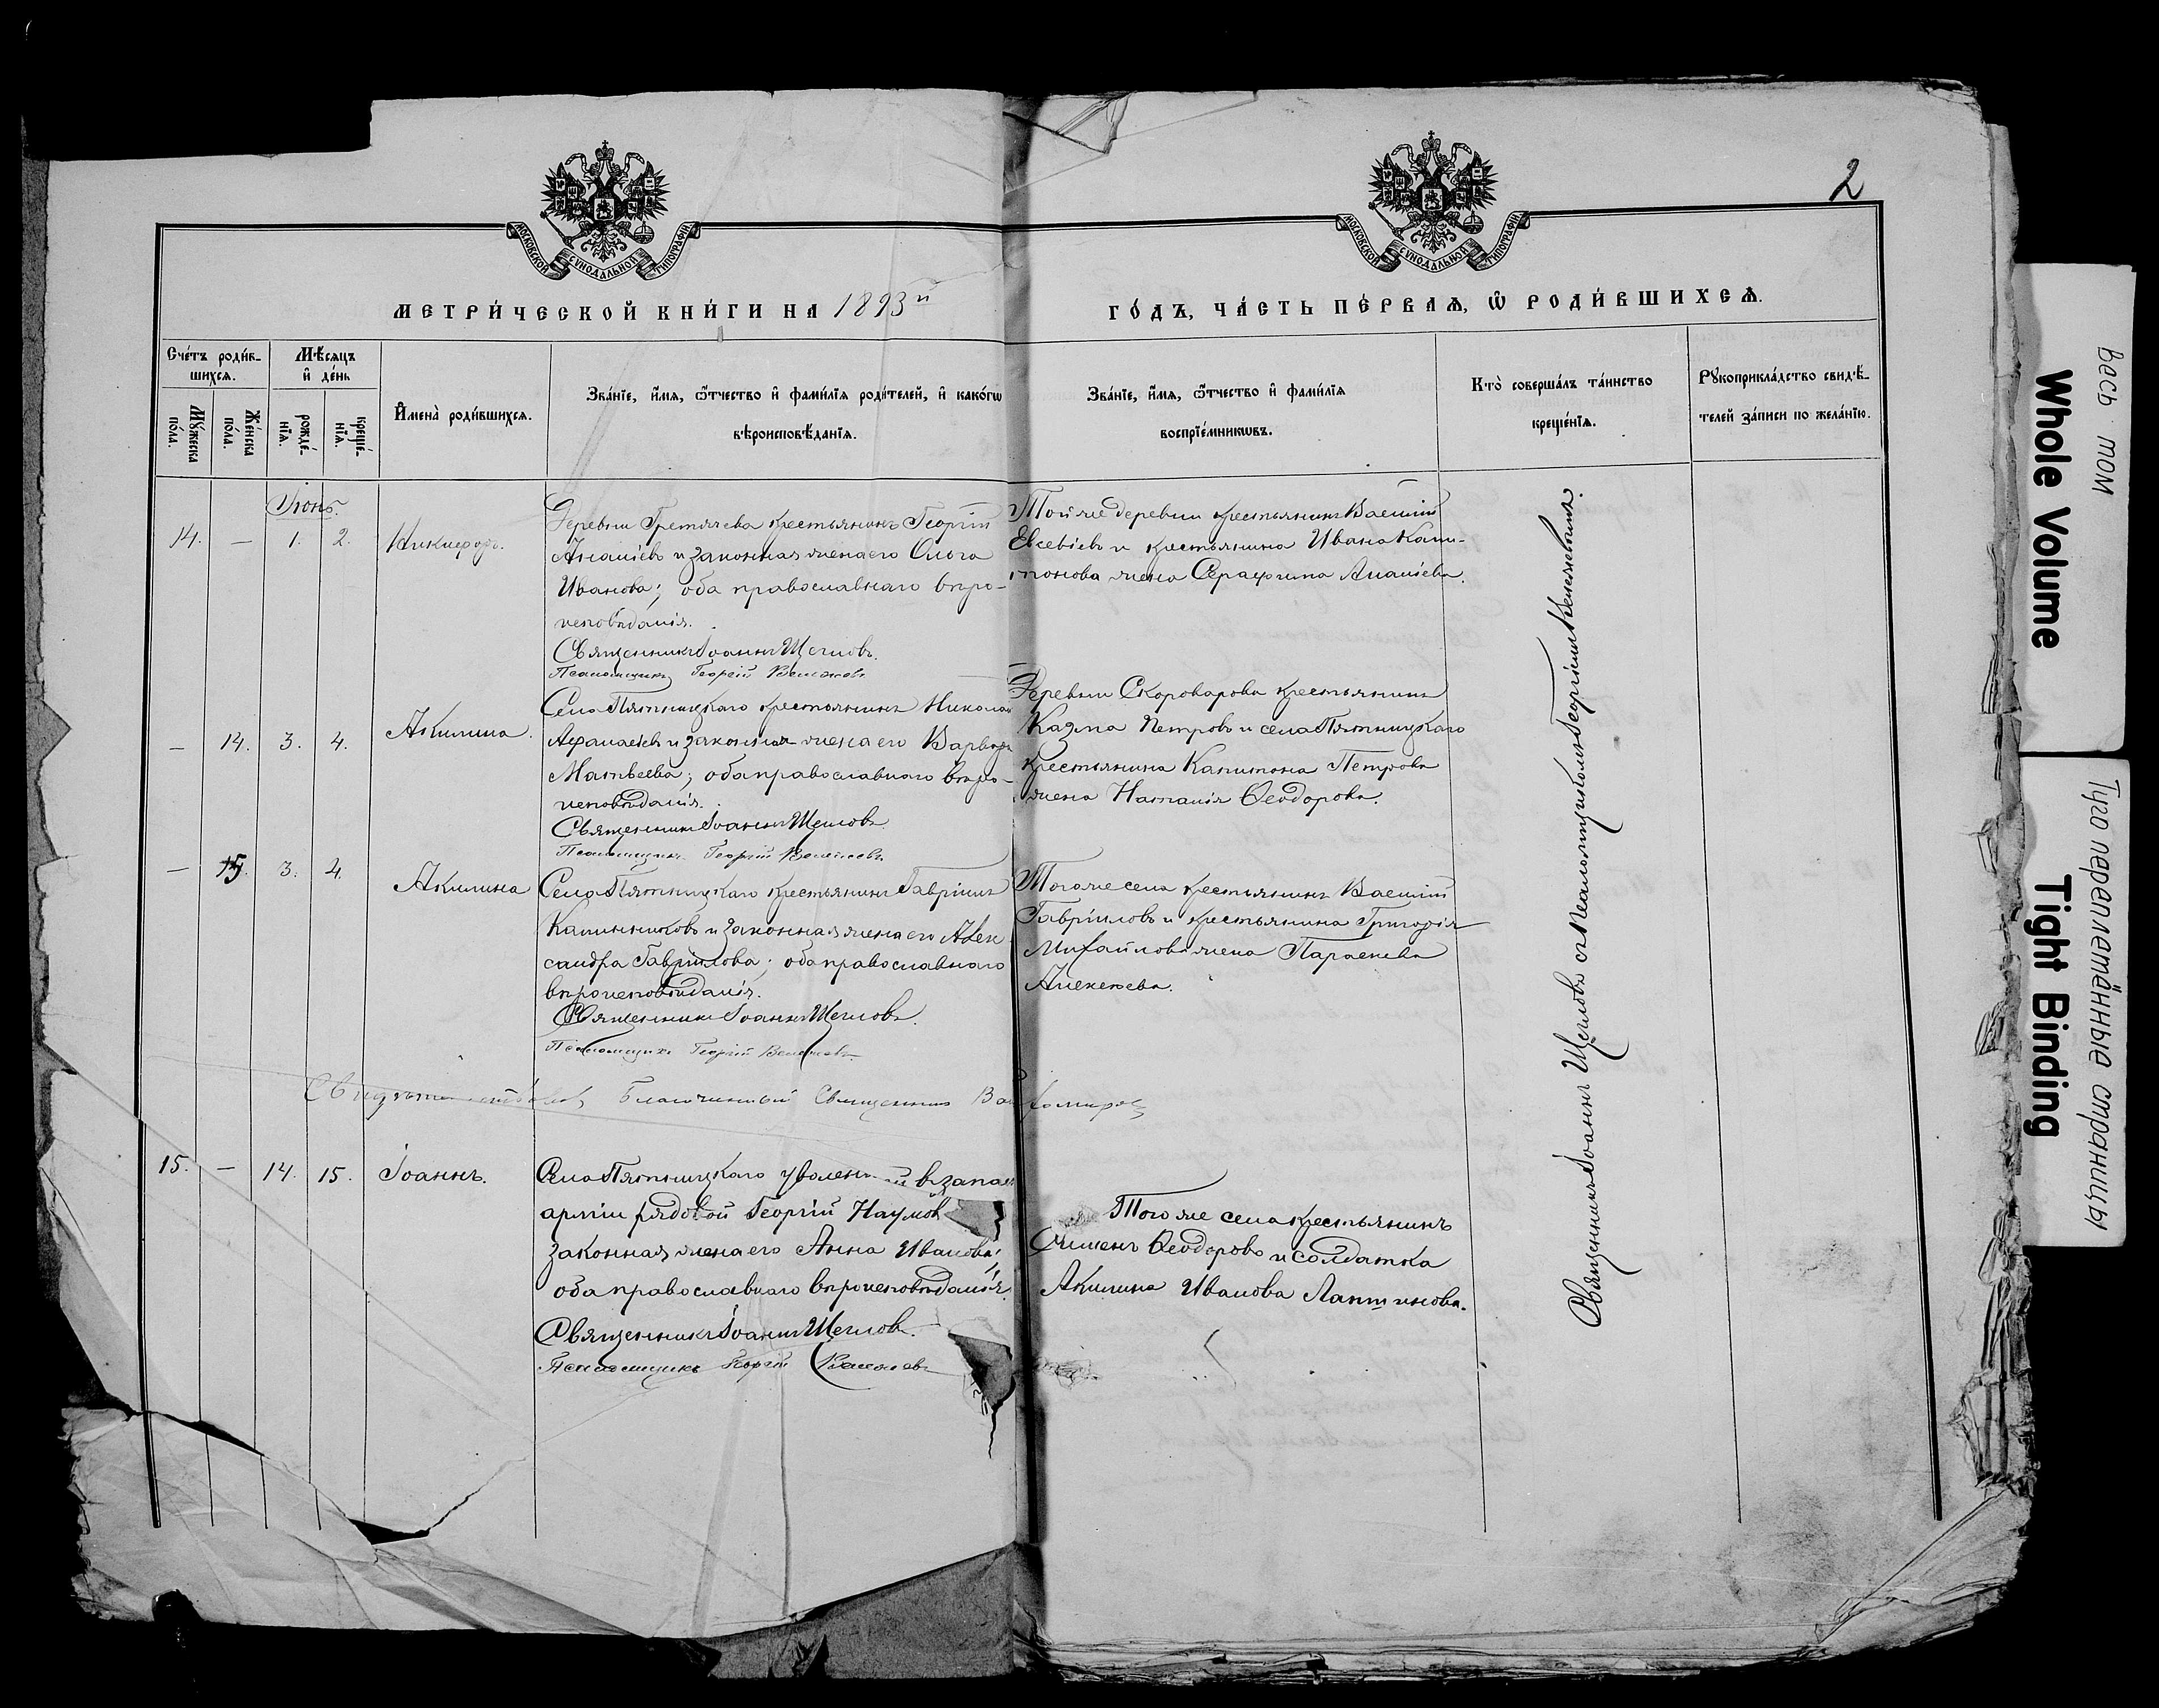 МОСКОВСКОЙ СУНОДАЛЬНОЙ ТИПОГРАФІИ
МОСКОВСКОЙ СУНОДАЛЬНОЙ ТИПОГРАФІИ
2
МЕТРИ́ЧЕСКОЙ КНИ́ГИ НА 1893й
ГО́ДЪ, ЧА́СТЬ ПЕ́РВАѦ, Ѽ РОДИ́ВШИХСѦ.
Сче́тъ роди́в-
шихсѧ.
Мѣ́сѧцъ
и҆ де́нь
Мꙋ́жеска
по́ла.
Же́нска
по́ла.
рожде́-
нїѧ.
креще́-
нїѧ.
И҆мена̀ роди́вшихсѧ.
Зва́нїе, и҆́мѧ, ѻ҆́тчество и҆ фами́лїѧ роди́телей, и҆ како́гѡ
вѣроисповѣ́данїѧ.
Зва́нїе, и҆́мѧ, ѻ҆́тчество и҆ фами́лїѧ
воспрїе́мникѡвъ.
Кто̀ соверша́лъ та́инство
креще́нїѧ.
Рꙋкоприкла́дство свидѣ́-
телей за́писи по жела́нїю.
Іюнь.
14. — 1. 2. Никифоръ.
Деревни Гремячева крестьянинъ Георгій
Ананіевъ и законная жена его Ольга
Иванова; оба православнаго вѣро-
исповѣданія.
Священникъ Іоаннъ Щегловъ.
Псаломщикъ Георгій
Той же деревни крестьянинъ Василій
Евсевіевъ и крестьянина Ивана Капи-
тонова жена Серафима Ананіева.
— 14. 3. 4. Акилина.
Села Пятницкаго крестьянинъ Николай
Афанасіевъ и законная жена его Варвара
Матвеева; оба православнаго вѣро-
исповѣданія.
Священникъ Іоаннъ Щегловъ
Псаломщикъ Георгій
Деревни Скороварова крестьянинъ
Казма Петровъ и села Пятницкаго
крестьянина Капитона Петрова
жена Наталія Ѳеодорова.
— 15. 3. 4. Акилина
Села Пятницкаго крестьянинъ Гавріилъ
Калинниковъ и законная жена его Алек
сандра Гавріилова; оба православнаго
вѣроисповѣданія.
Священникъ Іоаннъ Щегловъ.
Псаломщикъ Георгій
Того же села крестьянинъ Василій
Гавріиловъ и крестьянина Григорія
Михайлова жена Параскева
Алексеева.
Свидѣтельствовалъ Благочинный Священникъ
15. — 14. 15. Іоаннъ.
Села Пятницкаго уволенный въ запасъ
арміи рядовой Георгій Наумовъ
законная жена его Анна Иванова;
оба православнаго вѣроисповѣданія.
Священникъ Іоаннъ Щегловъ.
Псаломщикъ Георгій
Того же села крестьянинъ
Симеонъ Ѳеодоровъ и солдатка
Акилина Иванова Лаптинова.
Священникъ Іоаннъ Щегловъ съ Псаломщикомъ Георгіемъ
Весь том
Whole Volume
Туго переплетённые страницы
Tight Binding